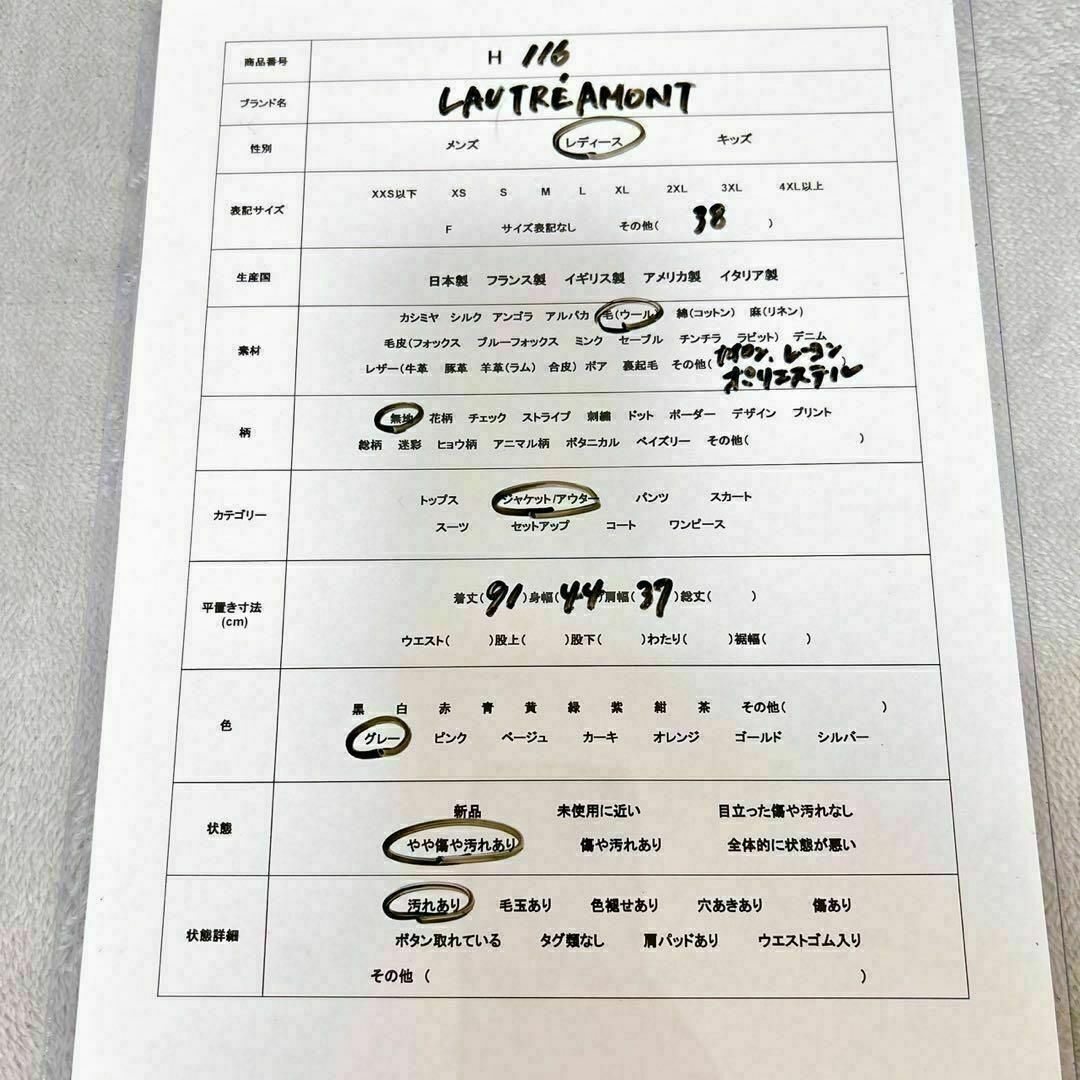 商品番号 H 116
ブランド名 LAUTRÉAMONT
性別 メンズ レディース キッズ
XXS以下 XS S M L XL 2XL 3XL 4XL以上
表記サイズ
F サイズ表記なし その他( 38 )
生産国 日本製 フランス製 イギリス製 アメリカ製 イタリア製
カシミヤ シルク アンゴラ アルパカ 毛(ウール) 綿(コットン) 麻(リネン)
毛皮(フォックス ブルーフォックス ミンク セーブル チンチラ ラビット) デニム
素材
レザー(牛革 豚革 羊革(ラム) 合皮) ボア 裏起毛 その他( ナイロン、レーヨン
ポリエステル
無地 花柄 チェック ストライプ 刺繍 ドット ボーダー デザイン プリント
柄
総柄 迷彩 ヒョウ柄 アニマル柄 ボタニカル ペイズリー その他( )
トップス ジャケット/アウター パンツ スカート
カテゴリー
スーツ セットアップ コート ワンピース
着丈(91)身幅(44)肩幅(37)総丈( )
平置き寸法
(cm)
ウエスト( )股上( )股下( )わたり( )裾幅( )
黒 白 赤 青 黄 緑 紫 紺 茶 その他( )
色
グレー ピンク ベージュ カーキ オレンジ ゴールド シルバー
新品 未使用に近い 目立った傷や汚れなし
状態
やや傷や汚れあり 傷や汚れあり 全体的に状態が悪い
汚れあり 毛玉あり 色褪せあり 穴あきあり 傷あり
状態詳細
ボタン取れている タグ類なし 肩パッドあり ウエストゴム入り
その他 ( )